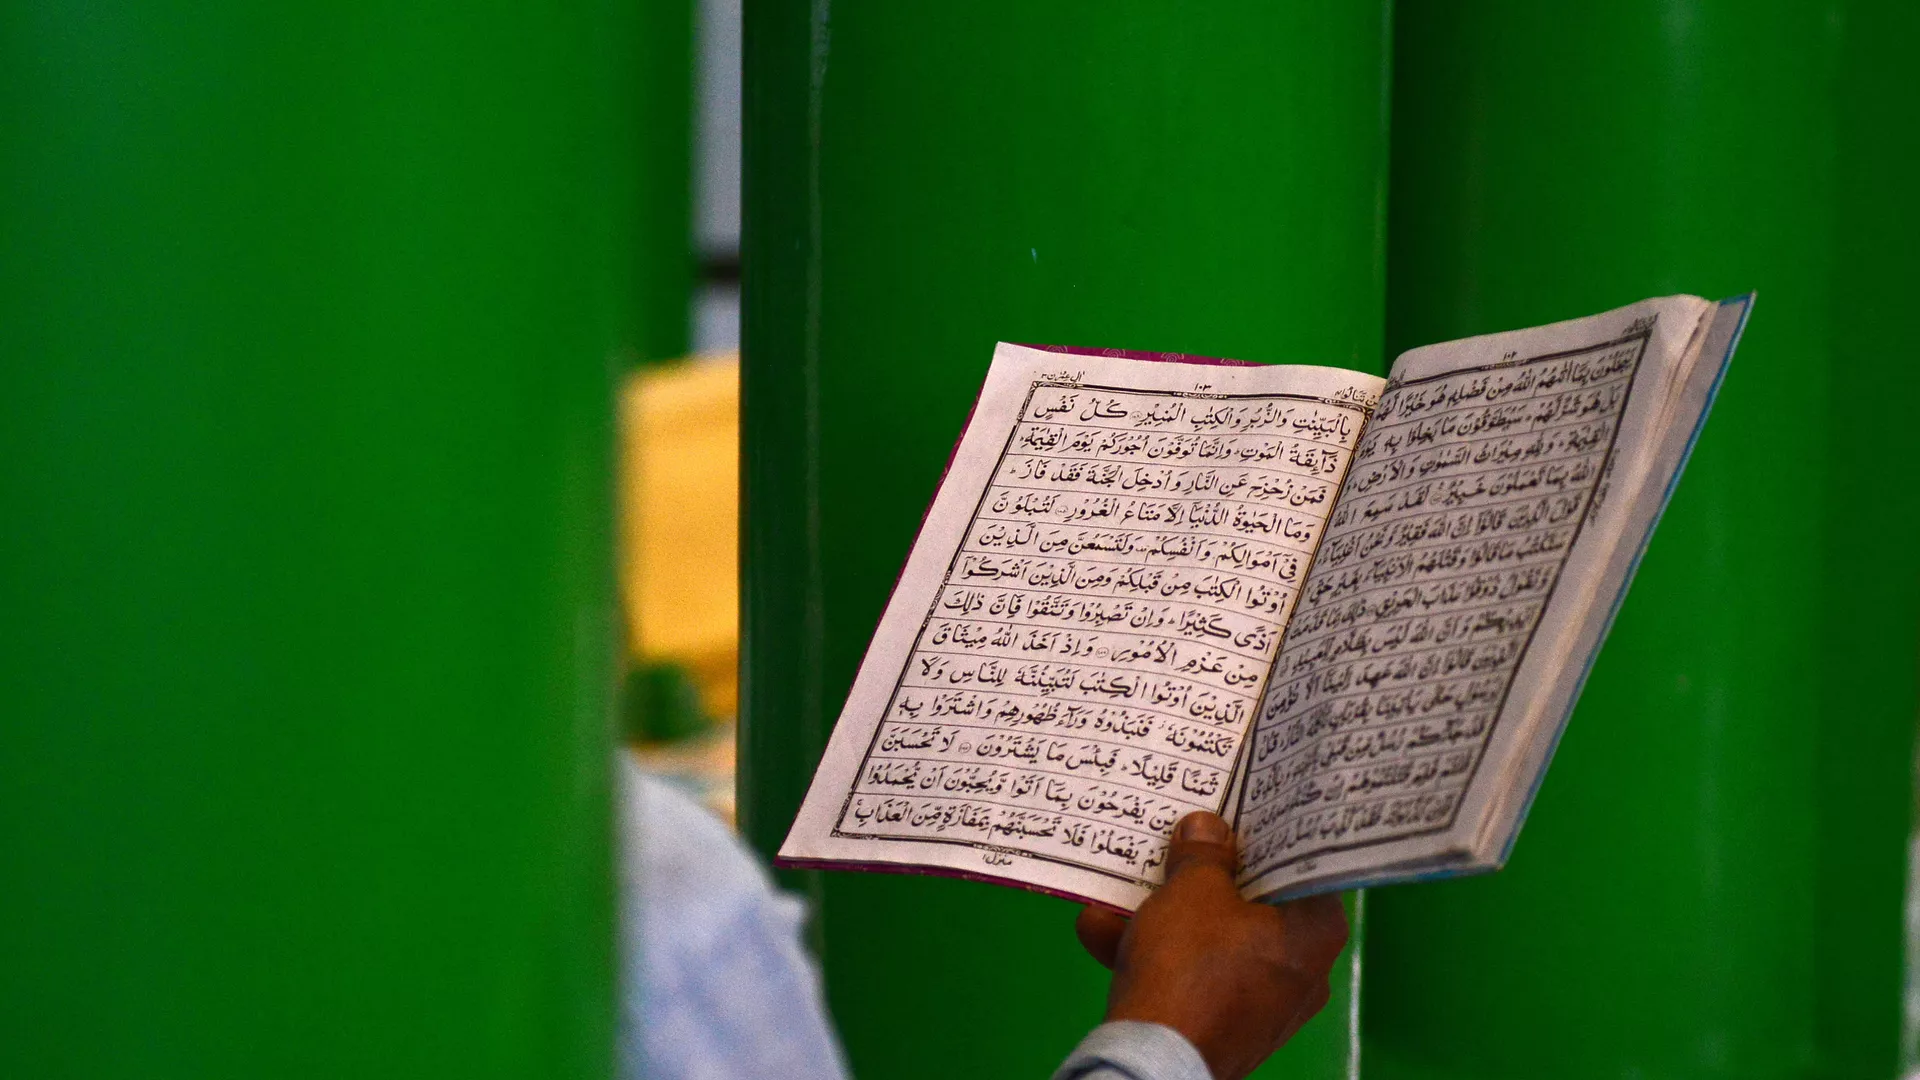 ١٠٢
يَبْخَلُوْنَ بِمَآ اٰتٰىهُمُ اللّٰهُ مِنْ فَضْلِهٖ هُوَ خَيْرًا لَّهُمْ
بَلْ هُوَ شَرٌّ لَّهُمْ سَيُطَوَّقُوْنَ مَا بَخِلُوْا بِهٖ يَوْمَ
الْقِيٰمَةِ وَلِلّٰهِ مِيْرَاثُ السَّمٰوٰتِ وَالْاَرْضِ وَ
اللّٰهُ بِمَا تَعْمَلُوْنَ خَبِيْرٌ لَقَدْ سَمِعَ اللّٰهُ
قَوْلَ الَّذِيْنَ قَالُوْٓا اِنَّ اللّٰهَ فَقِيْرٌ وَّنَحْنُ اَغْنِيَآءُ
سَنَكْتُبُ مَا قَالُوْا وَقَتْلَهُمُ الْاَنْۢبِيَآءَ بِغَيْرِ حَقٍّ
وَّنَقُوْلُ ذُوْقُوْا عَذَابَ الْحَرِيْقِ ذٰلِكَ بِمَا قَدَّمَتْ
اَيْدِيْكُمْ وَاَنَّ اللّٰهَ لَيْسَ بِظَلَّامٍ لِّلْعَبِيْدِ
الَّذِيْنَ قَالُوْٓا اِنَّ اللّٰهَ عَهِدَ اِلَيْنَآ اَلَّا نُؤْمِنَ
لِرَسُوْلٍ حَتّٰى يَاْتِيَنَا بِقُرْبَانٍ تَاْكُلُهُ النَّارُ قُلْ
قَدْ جَآءَكُمْ رُسُلٌ مِّنْ قَبْلِيْ بِالْبَيِّنٰتِ وَبِالَّذِيْ
قُلْتُمْ فَلِمَ قَتَلْتُمُوْهُمْ اِنْ كُنْتُمْ صٰدِقِيْنَ
فَاِنْ كَذَّبُوْكَ فَقَدْ كُذِّبَ رُسُلٌ مِّنْ قَبْلِكَ
لن تنالوا ٤ ١٠٣ اٰل عمرٰن ٣
بِالْبَيِّنٰتِ وَالزُّبُرِ وَالْكِتٰبِ الْمُنِيْرِ كُلُّ نَفْسٍ
ذَآئِقَةُ الْمَوْتِ وَاِنَّمَا تُوَفَّوْنَ اُجُوْرَكُمْ يَوْمَ الْقِيٰمَةِ
فَمَنْ زُحْزِحَ عَنِ النَّارِ وَاُدْخِلَ الْجَنَّةَ فَقَدْ فَازَ
وَمَا الْحَيٰوةُ الدُّنْيَآ اِلَّا مَتَاعُ الْغُرُوْرِ لَتُبْلَوُنَّ
فِيْٓ اَمْوَالِكُمْ وَاَنْفُسِكُمْ وَلَتَسْمَعُنَّ مِنَ الَّذِيْنَ
اُوْتُوا الْكِتٰبَ مِنْ قَبْلِكُمْ وَمِنَ الَّذِيْنَ اَشْرَكُوْٓا
اَذًى كَثِيْرًا وَاِنْ تَصْبِرُوْا وَتَتَّقُوْا فَاِنَّ ذٰلِكَ
مِنْ عَزْمِ الْاُمُوْرِ وَاِذْ اَخَذَ اللّٰهُ مِيْثَاقَ
الَّذِيْنَ اُوْتُوا الْكِتٰبَ لَتُبَيِّنُنَّهٗ لِلنَّاسِ وَلَا
تَكْتُمُوْنَهٗ فَنَبَذُوْهُ وَرَآءَ ظُهُوْرِهِمْ وَاشْتَرَوْا بِهٖ
ثَمَنًا قَلِيْلًا فَبِئْسَ مَا يَشْتَرُوْنَ لَا تَحْسَبَنَّ
يْنَ يَفْرَحُوْنَ بِمَآ اَتَوْا وَّيُحِبُّوْنَ اَنْ يُّحْمَدُوْا
لَمْ يَفْعَلُوْا فَلَا تَحْسَبَنَّهُمْ بِمَفَازَةٍ مِّنَ الْعَذَابِ
منزل ١